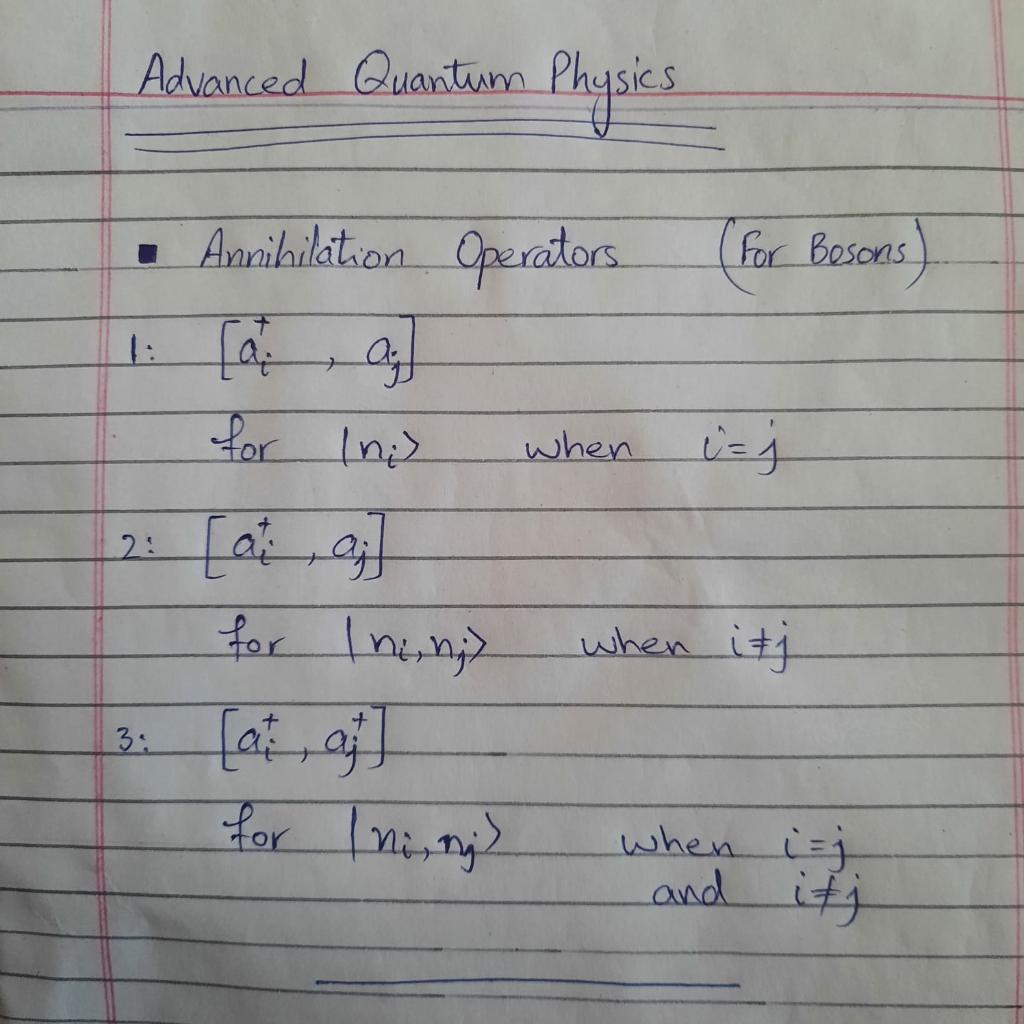 Advanced Quantum Physics
▪ Annihilation Operators (For Bosons)
1: [aᵢ⁺ , aⱼ]
for |nᵢ> when i = j
2: [aᵢ⁺ , aⱼ]
for |nᵢ, nⱼ> when i ≠ j
3: [aᵢ⁺ , aⱼ⁺]
for |nᵢ, nⱼ> when i = j
and i ≠ j